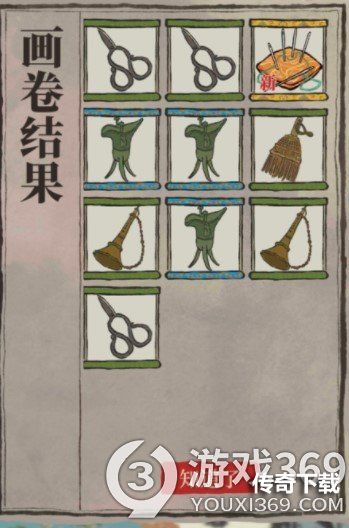 画卷结果
新
知
了
游戏369
传奇下载
YOUXI369.COM